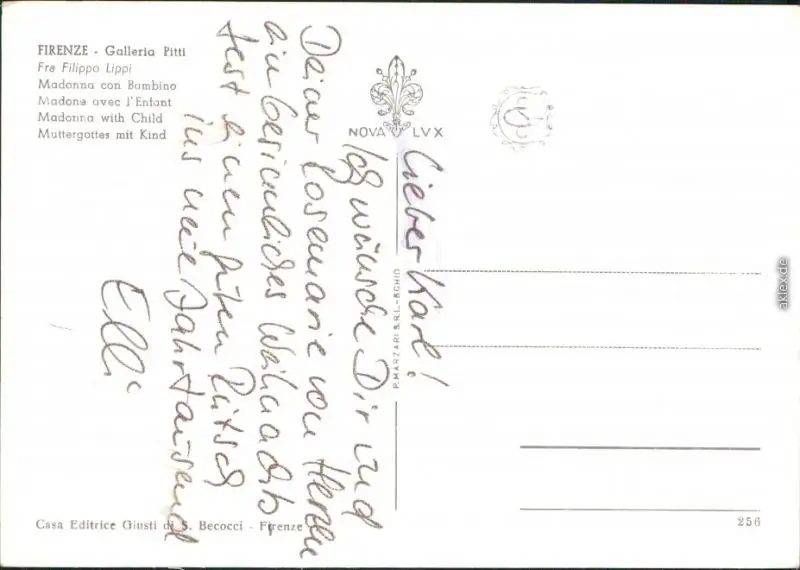 FIRENZE - Galleria Pitti
Fra Filippo Lippi
Madonna con Bambino
Madone avec l'Enfant
Madonna with Child
Muttergottes mit Kind
NOVA LVX
Lieber Karl!
Ich wünsche Dir und
Deiner Rosemarie von Herzen
ein besinnliches Weihnachts-
fest einen guten Rutsch
ins neue Jahrtausend
Elli
P. MARZARI S.R.L. - SCHIO
Casa Editrice Giusti di S. Becocci - Firenze
256
aklex.de